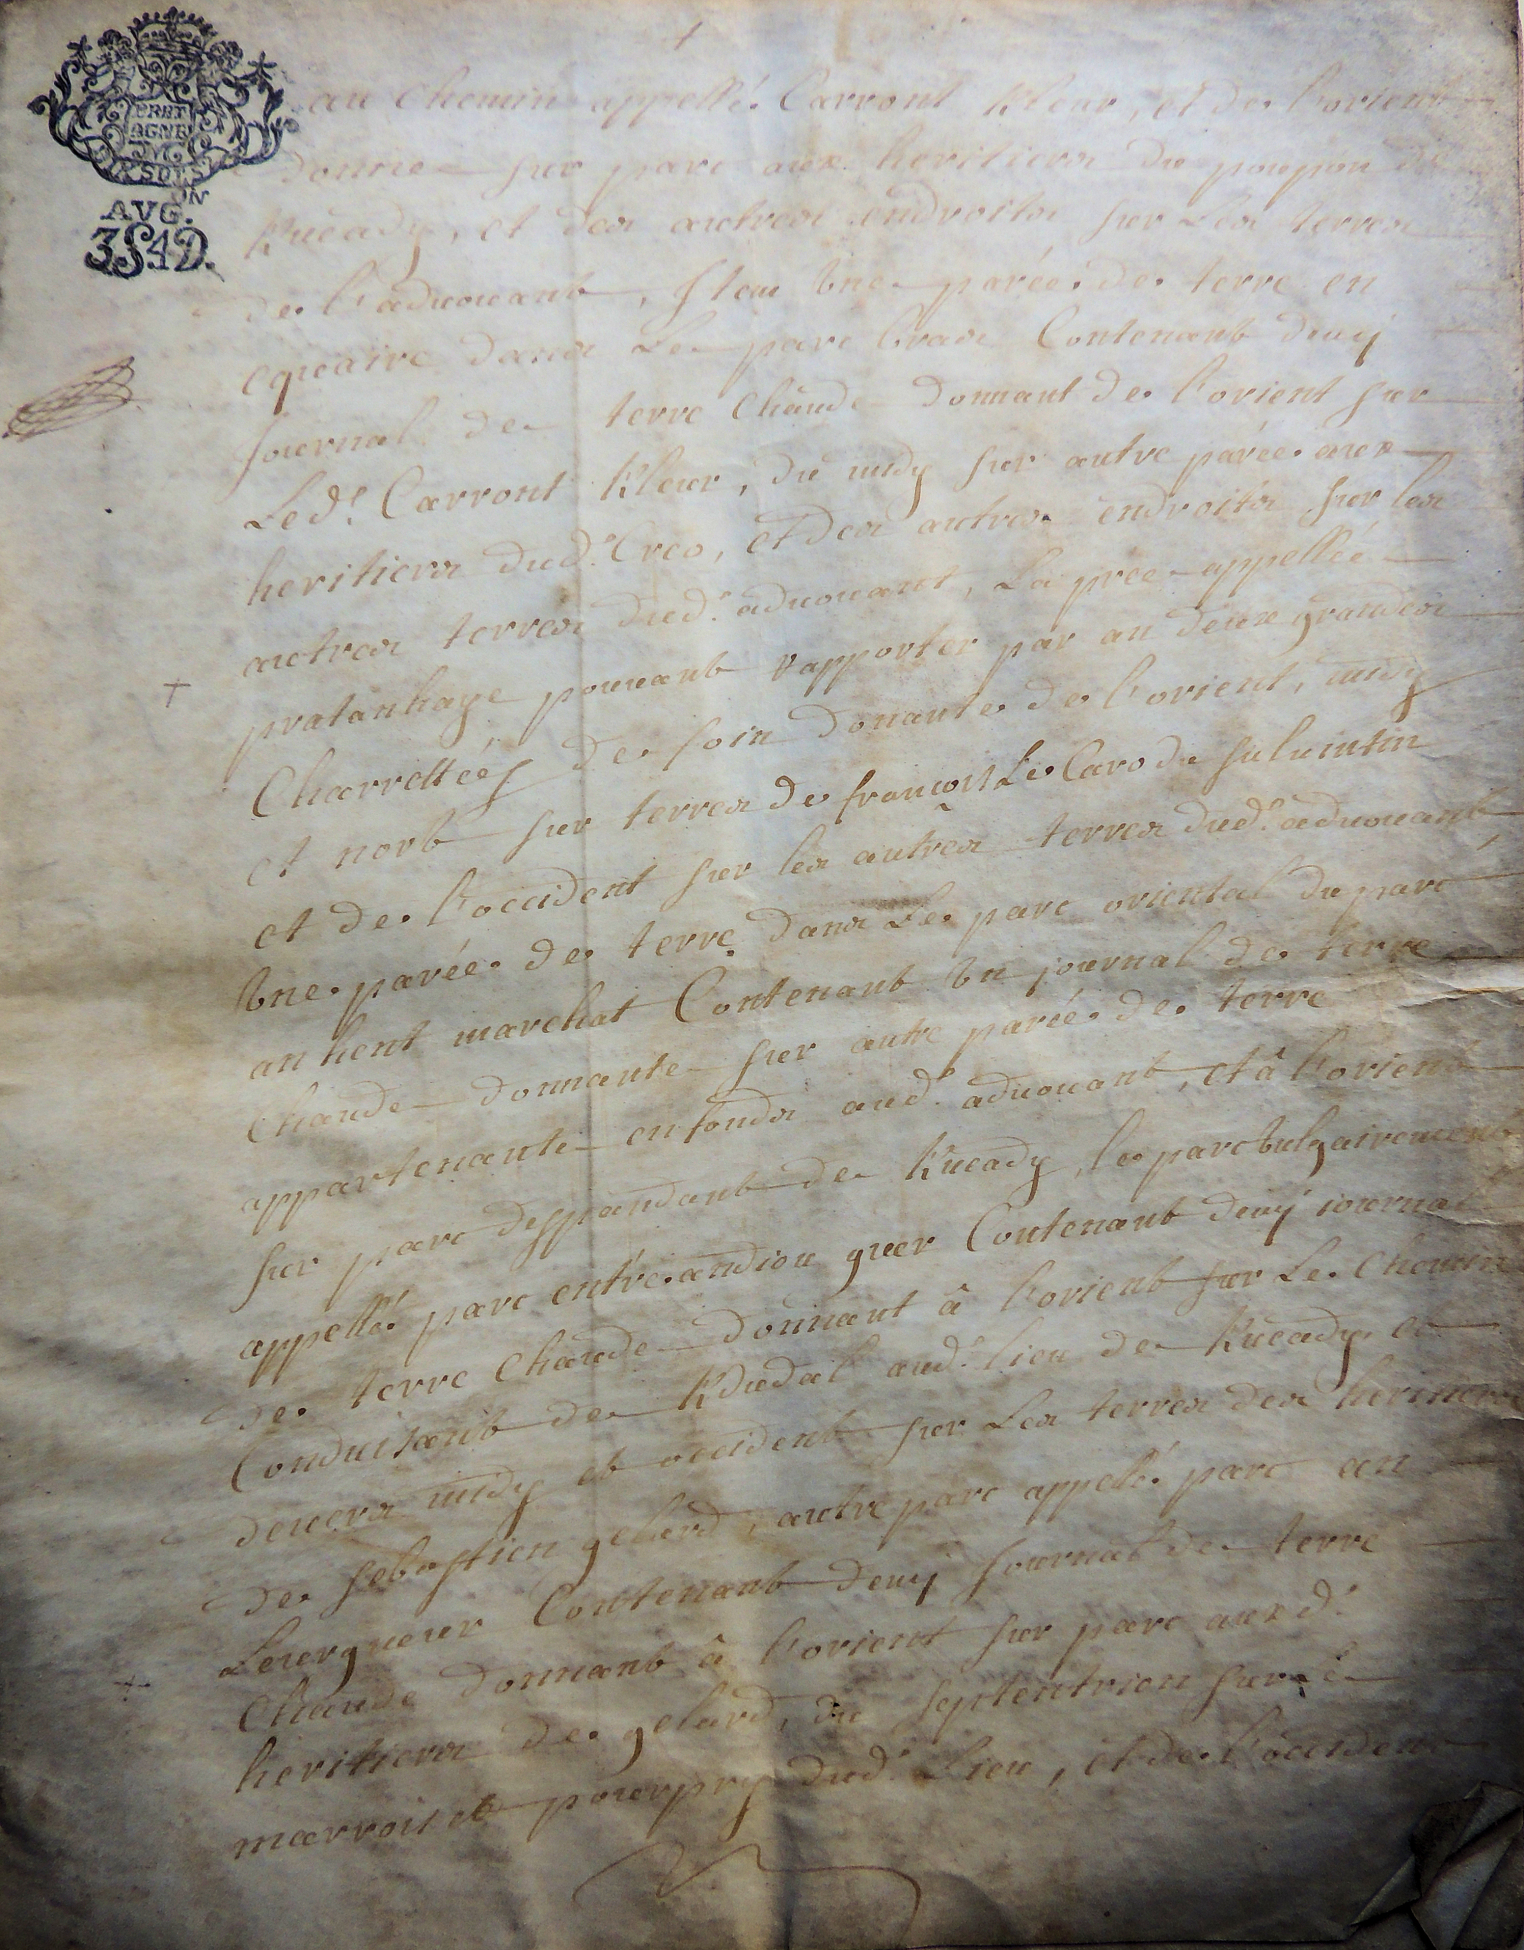 BRET
AGNE
DVC
SOLS
ON
AVG.
3S.4D.
au chemin appellé Carront Kleur, et de l'orient
donne sur parc aux heritiers du poupon de
Kueady, et des autres endroits sur les terres
de l'aduouant, Item Vne parée de terre en
equaire dans Le parc bras Contenant demy
Journal de terre chaude donnant de l'orient sur
Led.t Carront Kleur, du midy sur autre parée aux
heritiers dud.t Creo, et des autres endroits sur les
autres terres dud.t aduouant, La prée appellée
pratanhaye pouuant rapporter par an deux grandes
Charrettées de foin donante de l'orient, midy
et nort sur terres de francois Le Caro de
et de l'occident sur les autres terres dud.t aduouant,
Vne parée de terre dans Le parc oriental du parc
an hent marchat Contenant Vn journal de terre
Chaude donnante sur autre parée de terre
appartenante en fonds aud.t aduouant, et â l'orient
sur parc despandant de Kueady, le parc Vulgairement
appellé parc entré andiou guer Contenant demy iournal
de terre Chaude donnant â l'orient sur Le Chemin
Conduisant de Kdudal aud.t lieu de Kueady et
deuers midy et occident sur Les terres des heritiers
de Sebastien gelard, autre parc appellé parc an
Leuergueur Contenant demy Journal de terre
Chaude donnant â l'orient sur parc aux d.t
heritiers de gelard, du septentrion sur le
marroit et pourpry dud.t Lieu, et de l'occident